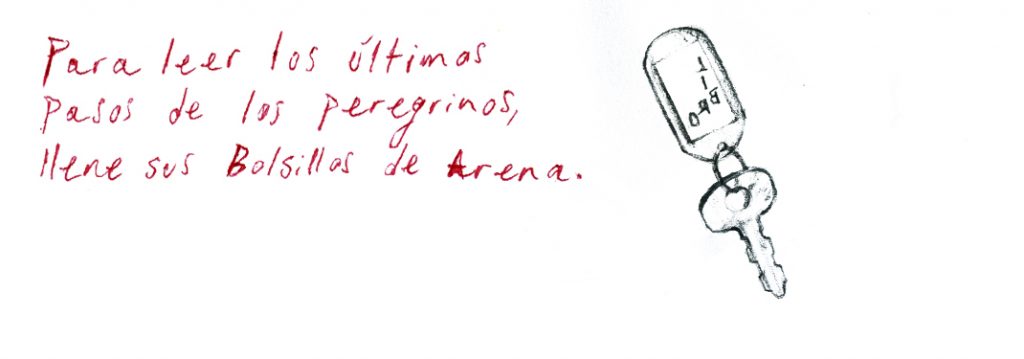 Para leer los últimos
pasos de los peregrinos,
llene sus Bolsillos de Arena.
LIBRO